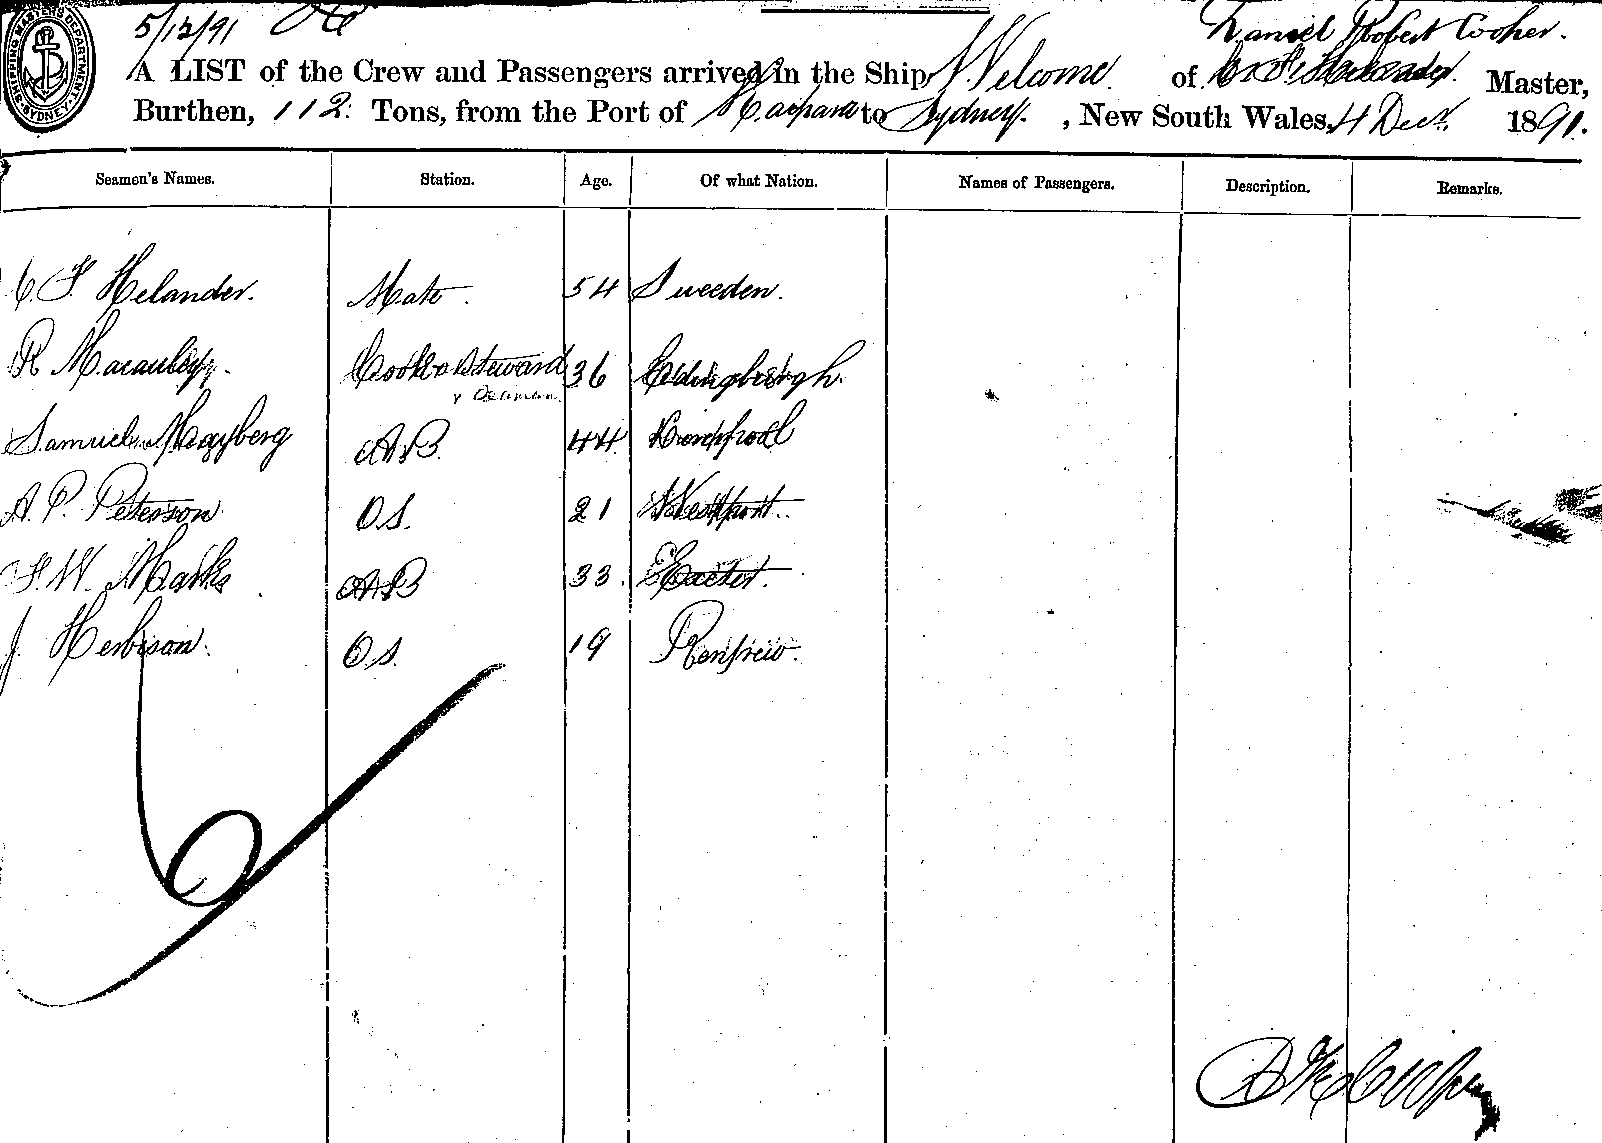 SHIPPING MASTERS DEPARTMENT. SYDNEY N.S.W.
5/12/91
Daniel Robert Cooper.
A LIST of the Crew and Passengers arrived in the Ship Welcome of C. F. Helander Master,
Burthen, 112 Tons, from the Port of to Sydney, New South Wales, 4 Decr. 1891.
Seamen's Names. Station. Age. Of what Nation. Names of Passengers. Description. Remarks.
C. F. Helander. Mate. 54 Sweden.
R Macauley. Cook & Steward 36 Edingburgh.
& Seaman.
Samuel Mayberg A.B. 44 Liverpool
A. P. Peterson O.S. 21 Westport.
F. W. Marks A.B 33. Exeter.
J. Herbison. O.S. 19 Renfrew.
D R Cooper